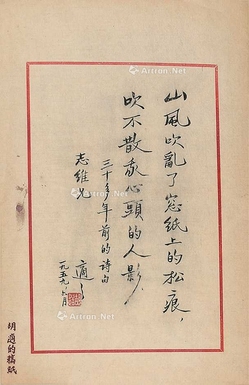 山風吹亂了窓紙上的松痕，
吹不散我心頭的人影。
三十多年前的詩句
志維兄
適之
一九五九、
胡適的稿紙
Artron.Net
Artron.Net
Artron.Net
Artron.Net